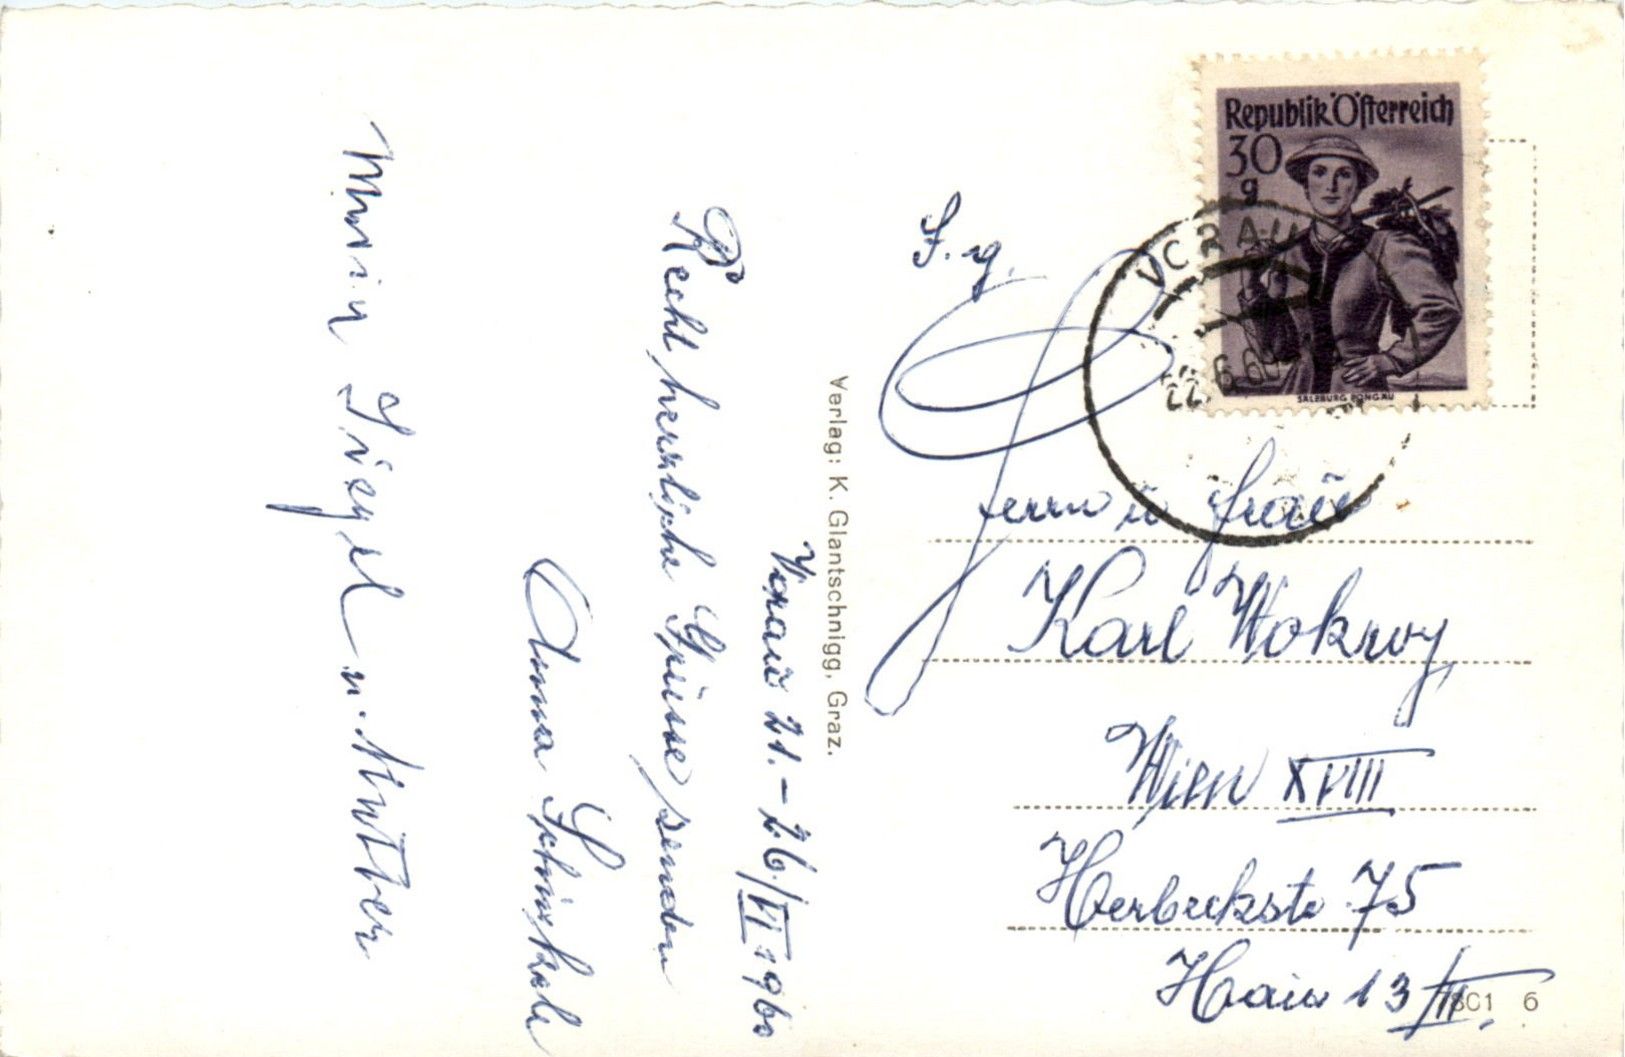 Vorau 21.-26./VI 1960
Recht herzliche Grüsse senden
Anna
u. Mutter
Verlag: K. Glantschnigg, Graz.
Republik Österreich
30
g
SALZBURG PONGAU
VORAU
22.6.60
Herrn u Frau
Karl Wokroy
Wien XVIII
Herbeckstr 75
Haus 13/III.
6